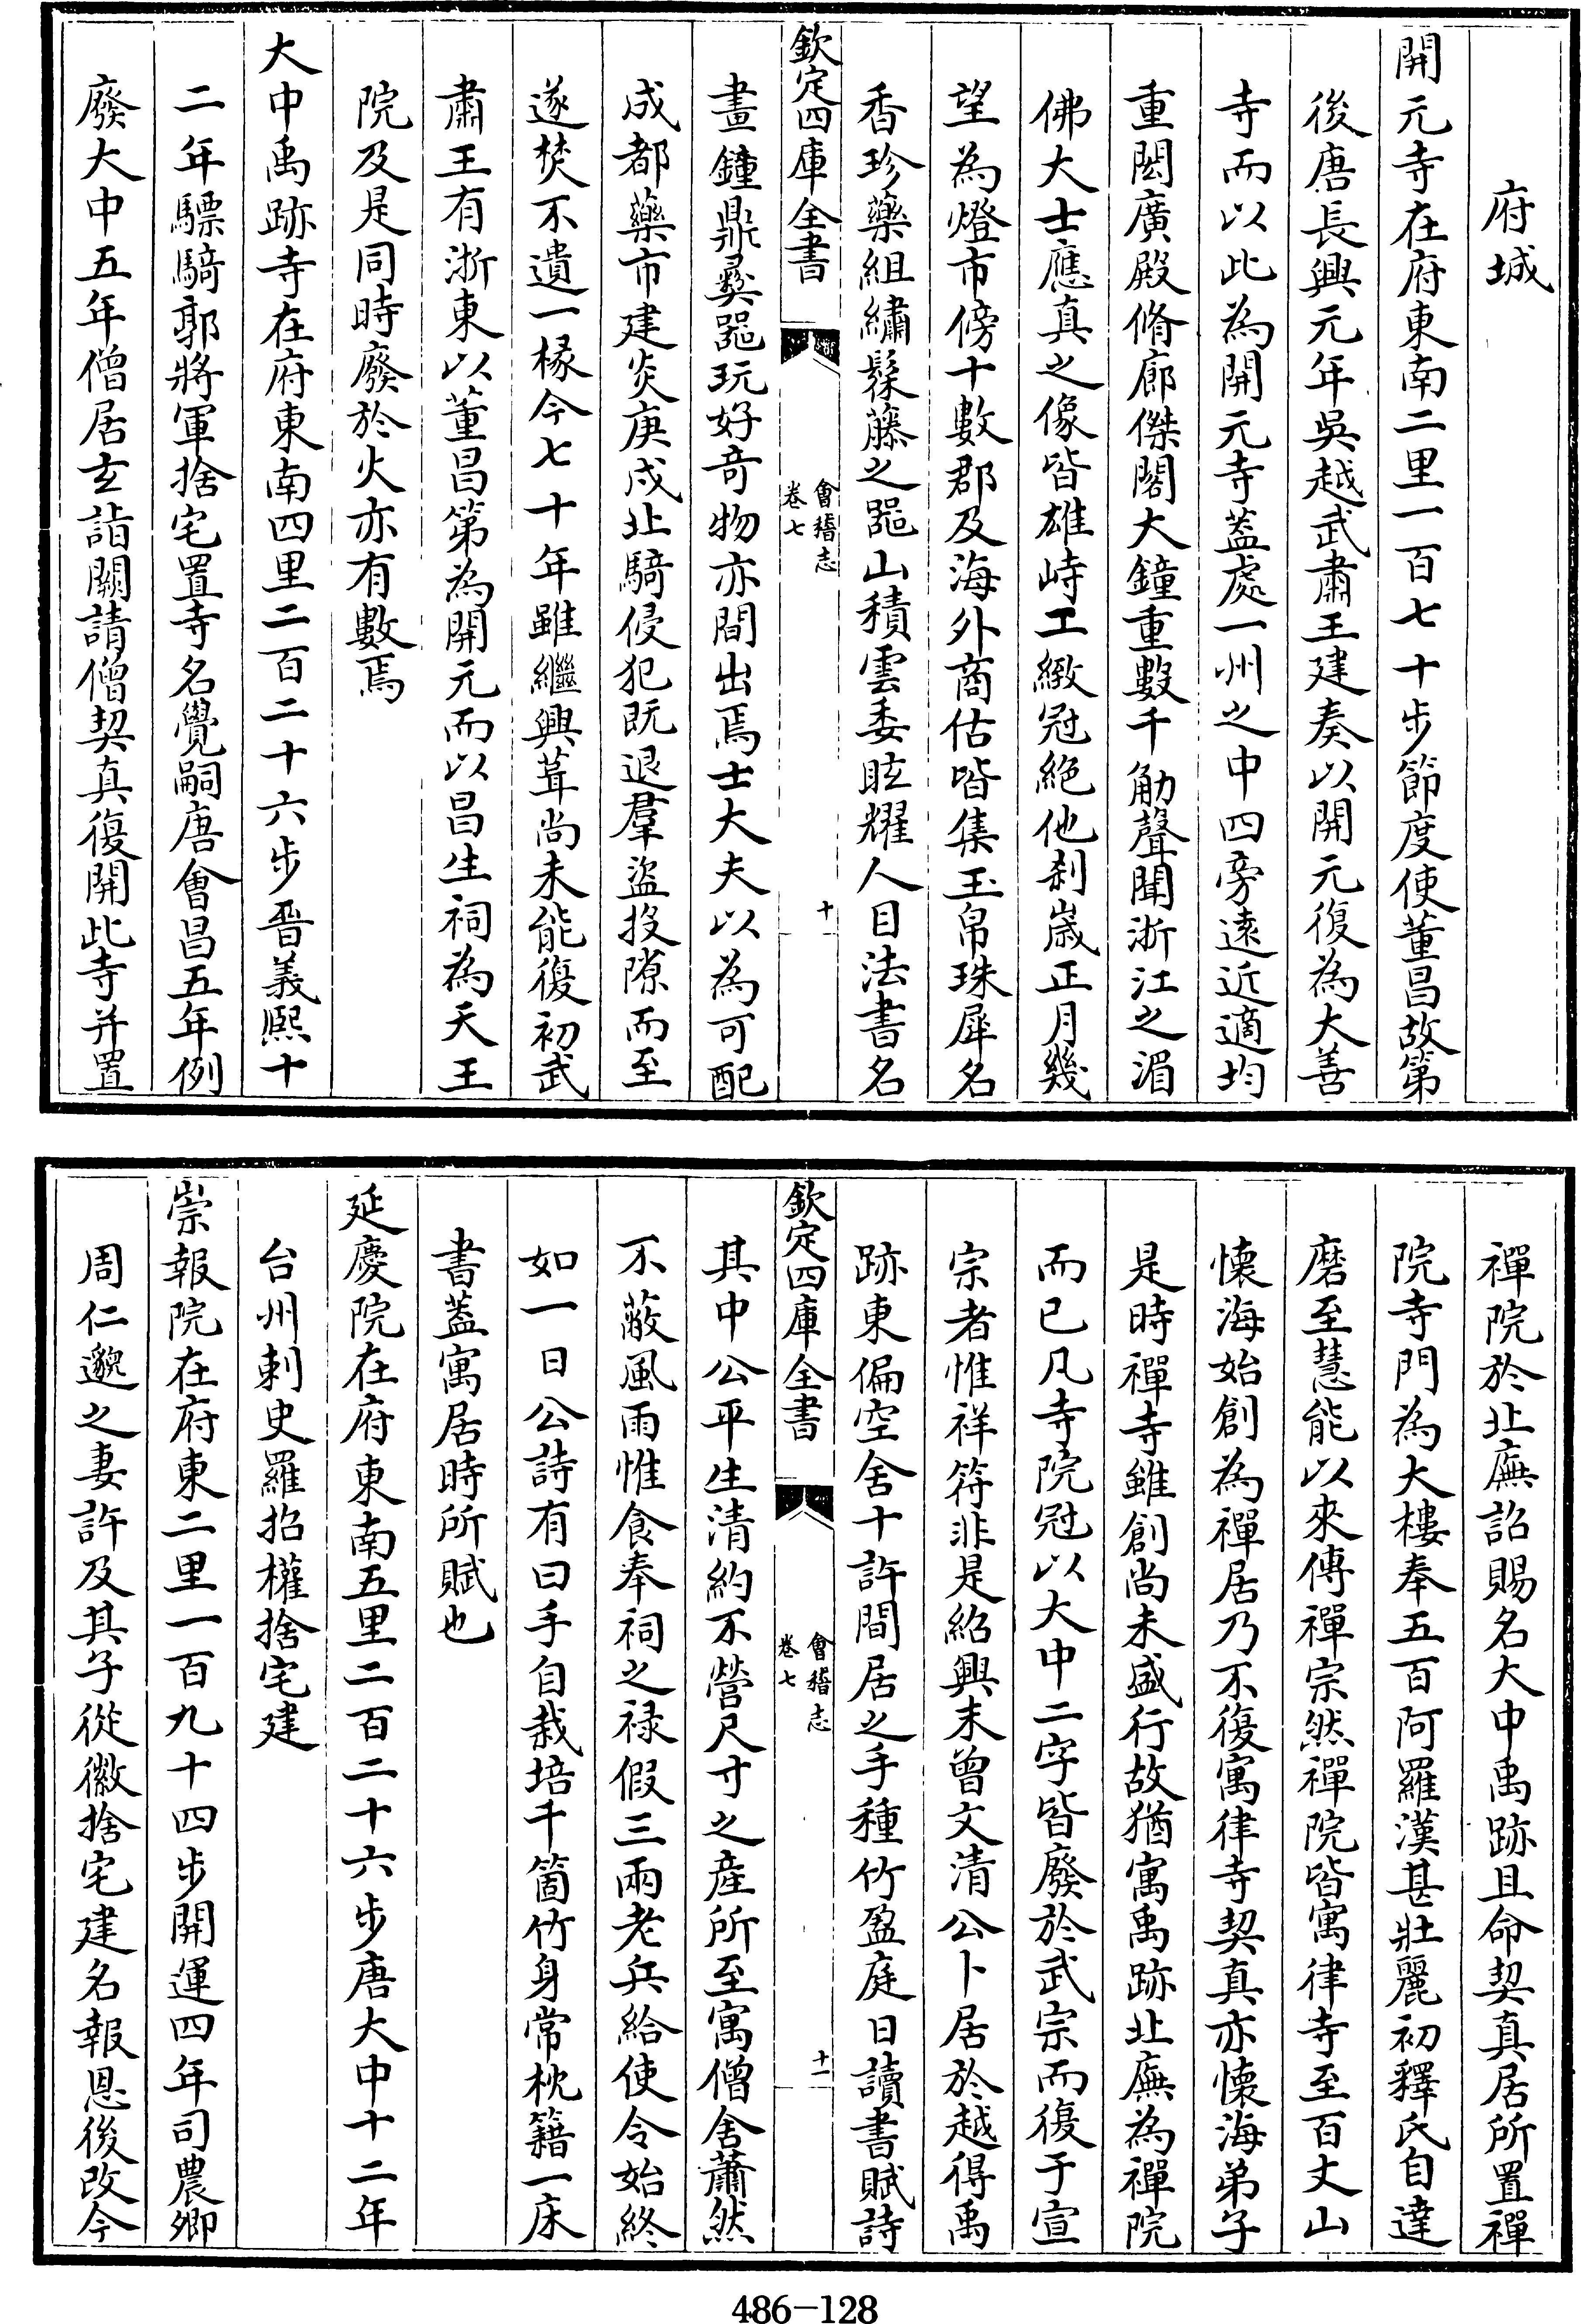 府城
開元寺在府東南二里一百七十步節度使董昌故第
後唐長興元年吳越武肅王建奏以開元復為大善
寺而以此為開元寺蓋處一州之中四旁遠近適均
重閎廣殿脩廊傑閣大鐘重數千觔聲聞浙江之湄
佛大士應真之像皆雄峙工緻冠絶他刹嵗正月幾
望為燈市傍十數郡及海外商估皆集玉帛珠犀名
香珍藥組繡髹藤之器山積雲委眩耀人目法書名
欽定四庫全書
會稽志
卷七
十
畫鐘鼎彝器玩好竒物亦間出焉士大夫以為可配
成都藥市建炎庚戌北騎侵犯既退羣盜投隙而至
遂焚不遺一椽今七十年雖繼興葺尚未能復初武
肅王有浙東以董昌第為開元而以昌生祠為天王
院及是同時廢於火亦有數焉
大中禹跡寺在府東南四里二百二十六步晉義熙十
二年驃騎郭將軍捨宅置寺名覺嗣唐會昌五年例
廢大中五年僧居玄詣闕請僧契真復開此寺并置
禪院於北廡詔賜名大中禹跡且命契真居所置禪
院寺門為大樓奉五百阿羅漢甚壯麗初釋氏自達
磨至慧能以來傳禪宗然禪院皆寓律寺至百丈山
懐海始創為禪居乃不復寓律寺契真亦懐海弟子
是時禪寺雖創尚未盛行故猶寓禹跡北廡為禪院
而已凡寺院冠以大中二字皆廢於武宗而復于宣
宗者惟祥符非是紹興末曾文清公卜居於越得禹
跡東偏空舍十許間居之手種竹盈庭日讀書賦詩
欽定四庫全書
會稽志
卷七
十一
其中公平生清約不營尺寸之産所至寓僧舍蕭然
不蔽風雨惟食奉祠之禄假三兩老兵給使令始終
如一日公詩有曰手自栽培千箇竹身常枕籍一床
書蓋寓居時所賦也
延慶院在府東南五里二百二十六步唐大中十二年
台州刺史羅招權捨宅建
崇報院在府東二里一百九十四步開運四年司農卿
周仁邈之妻許及其子從徽捨宅建名報恩後改今
486-128